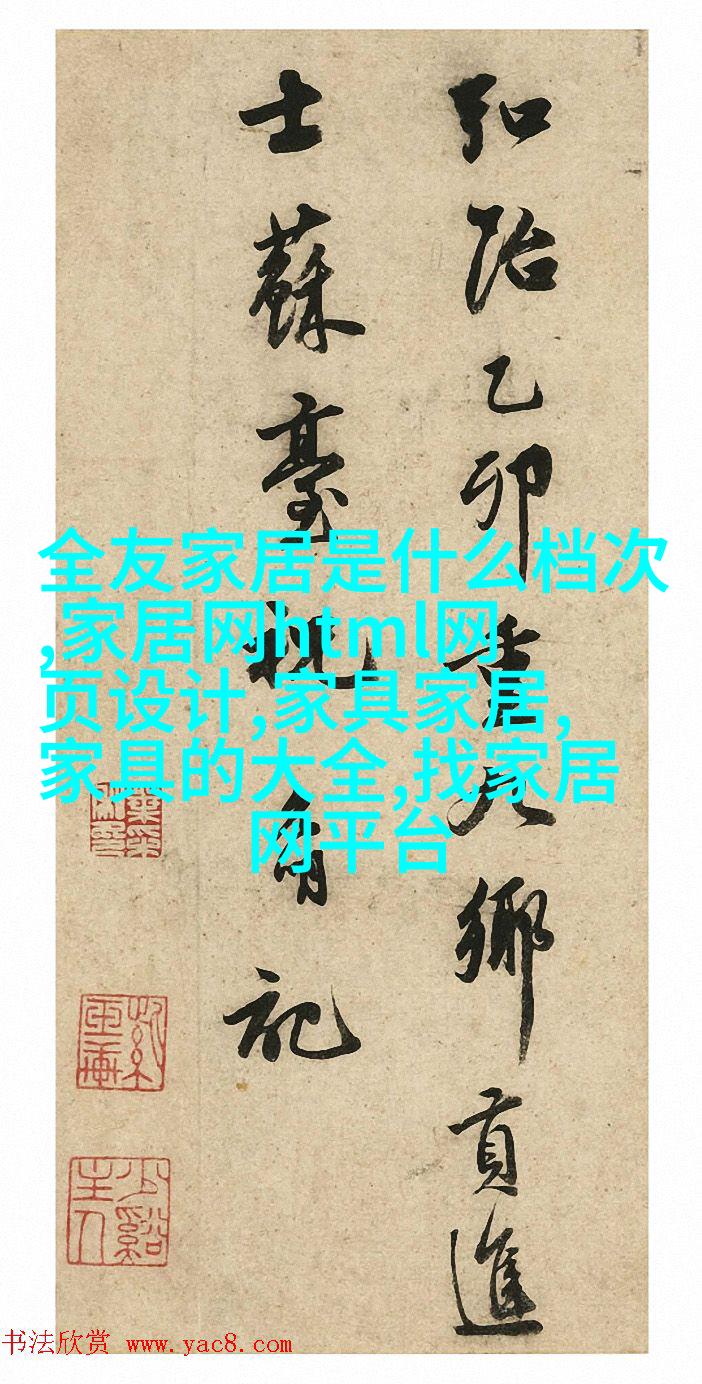 弘治乙卯重九鄉貢進
士蘇臺祝記
全友家居是什么档次
,家居网html网
页设计,家具家居,
家具的大全,找家居
网平台
少谿主人
书法欣赏 www.yac8.com